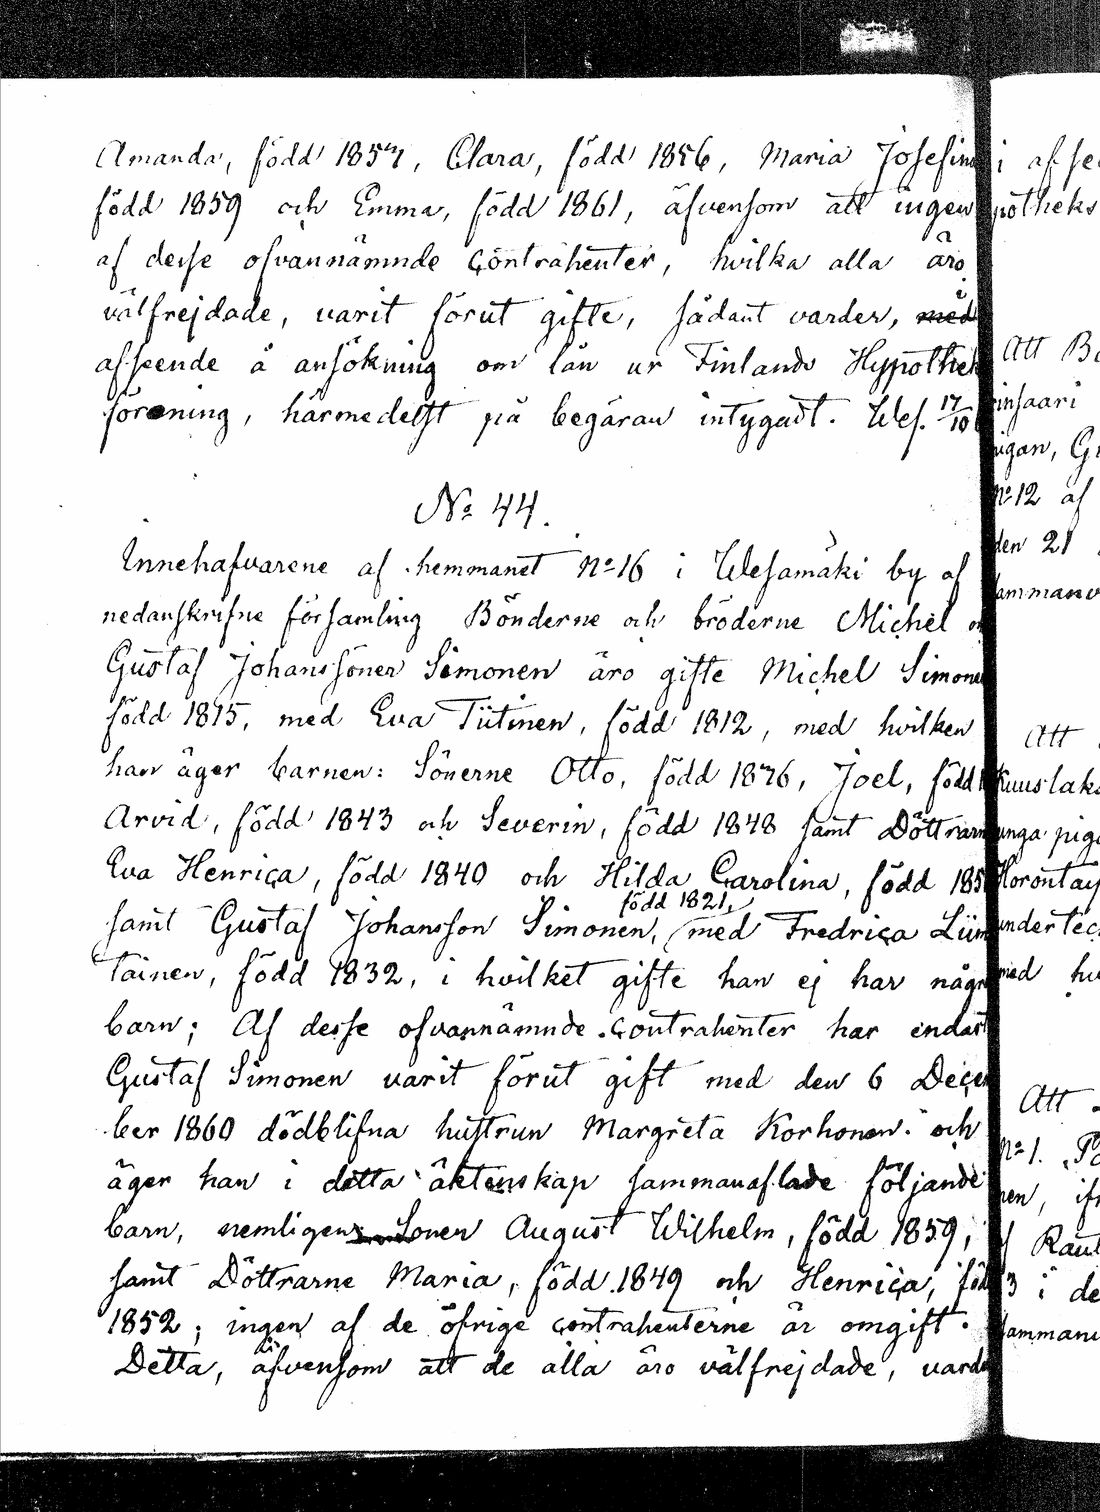 Amanda, född 1854, Clara, född 1856, Maria Josefin
född 1859 och Emma, född 1861, äfvensom att ingen
af desse ofvannämnde Contrahenter, hvilka alla äro
välfrejdade, varit förut gifte, sådant varder, i
afseende å ansökning om lån ur Finlands Hypothek
förening, härmedelst på begäran intygadt. Wes. 17/10
No 44.
Innehafvarene af hemmanet No 16 i Wesamäki by af
nedanskrifne församling Bönderne och bröderne Michel
Gustaf Johanssöner Simonen äro gifte Michel Simone
född 1815, med Eva Tiitinen, född 1812, med hvilken
han äger barnen: Sönerne Otto, född 1876, Joel, född
Arvid, född 1843 och Severin, född 1848 samt Döttrarn
Eva Henrica, född 1840 och Hilda Carolina, född 185
samt Gustaf Johansson Simonen, född 1821, med Fredrica Liim
tainen, född 1832, i hvilket gifte han ej har någr
barn; Af desse ofvannämnde Contrahenter har endast
Gustaf Simonen varit förut gift med den 6 Decem
ber 1860 dödblifna hustrun Margreta Korhonen och
äger han i detta äktenskap sammanaflade följande
barn, nemligen Sonen August Wilhelm, född 1859,
samt Döttrarne Maria, född 1849 och Henrica, föd
1852; ingen af de öfrige contrahenterne är omgift.
Detta, äfvensom att de alla äro välfrejdade, varde
i afse
potheks
Att B
rinsaari
igan, G
No 12 af
den 21
ammanv
Att
Kuuslaks
unga piga
Horontay
undertec
med hv
Att
No 1.
nen, if
f Raut
3 i de
ammanv